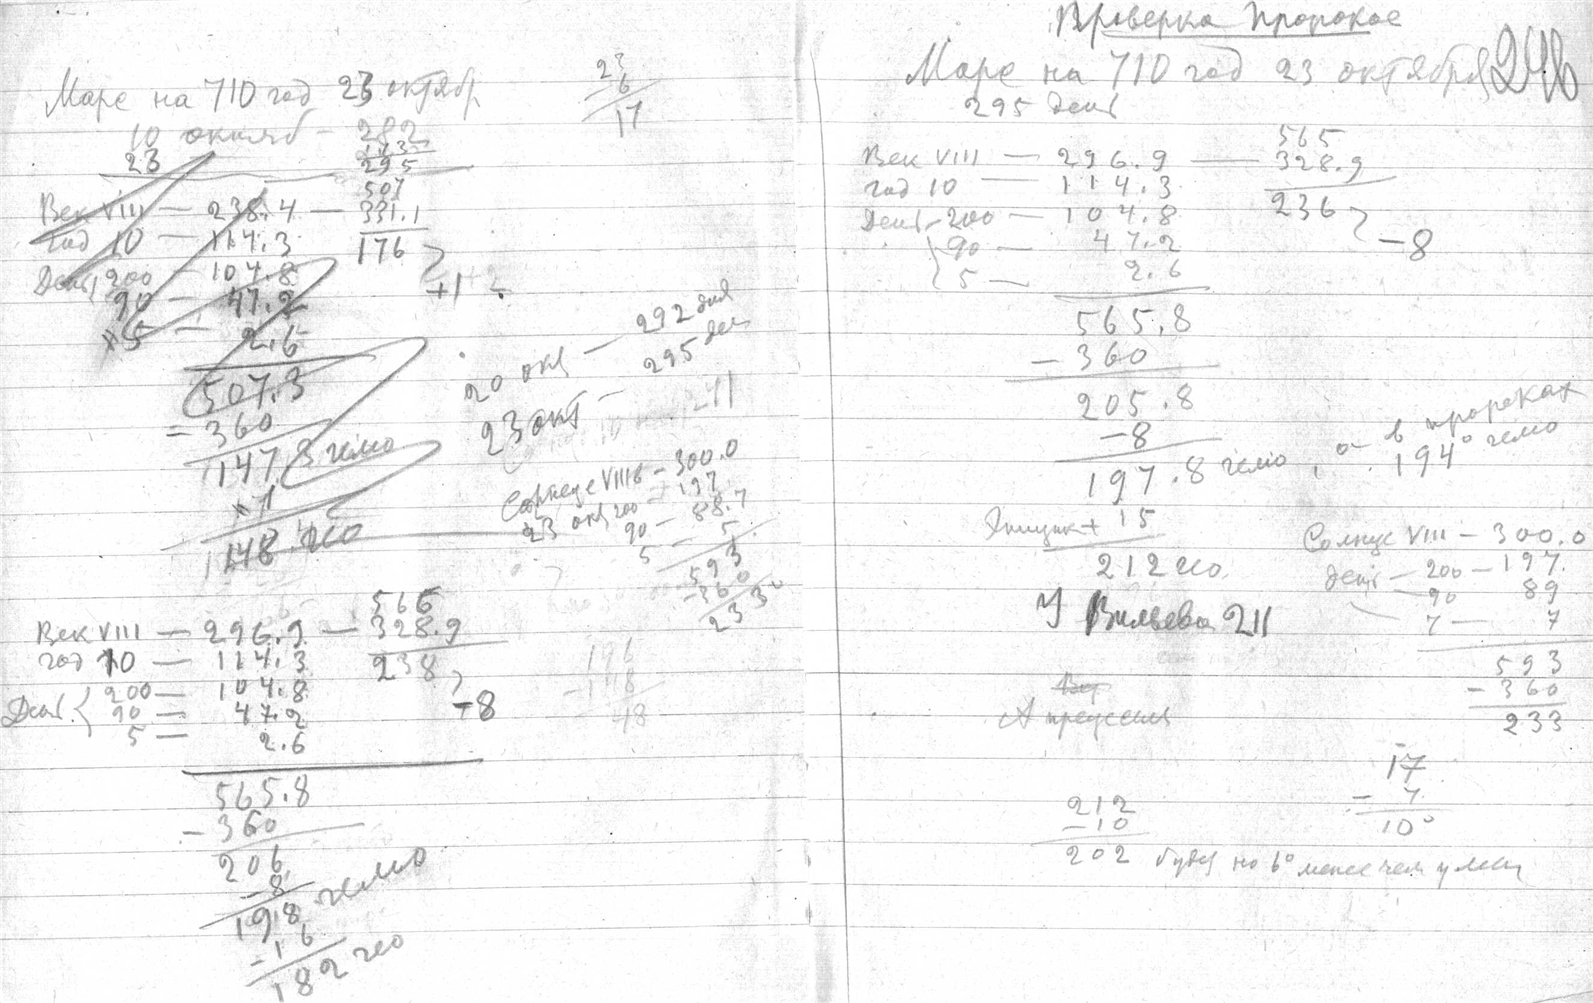 Марс на 710 год 23 октябр
23
6
17
10 октяб - 282
23
13
295
507
Век VIII — 238.4 — 331.1
год 10 — 114.3
176
День 200 — 104.8
+1
90 — 47.2
5 — 2.6
507.3
- 360
147.3 гелио
+1
148 гео
20 окт — 292 дня
23 окт — 295 ден
Солнце VIII в — 300.0
23 окт 200 — 197
90 — 88.7
5 — 5
593
- 360
233°
565
Век VIII — 296.9 — 328.9
год 10 — 114.3
238
День { 200 — 104.8
90 — 47.2
-8
5 — 2.6
196
- 148
48
565.8
- 360
206
- 8
198 гелио
- 16
182 гео
Проверка Пророков
246
Марс на 710 год 23 октября
295 день
565
Век VIII — 296.9 — 328.9
год 10 — 114.3
236
День - 200 — 104.8
-8
90 — 47.2
5 — 2.6
565.8
- 360
205.8
- 8
197.8 гелио, в пророках
194° гелио
+ 15
212 гео
У Вильева 211
Солнце VIII — 300.0
день — 200 — 197.
90 89
7 — 7
593
- 360
233
А прецессия
17
- 7
10°
212
- 10
202 будет на 6° менее чем у меня